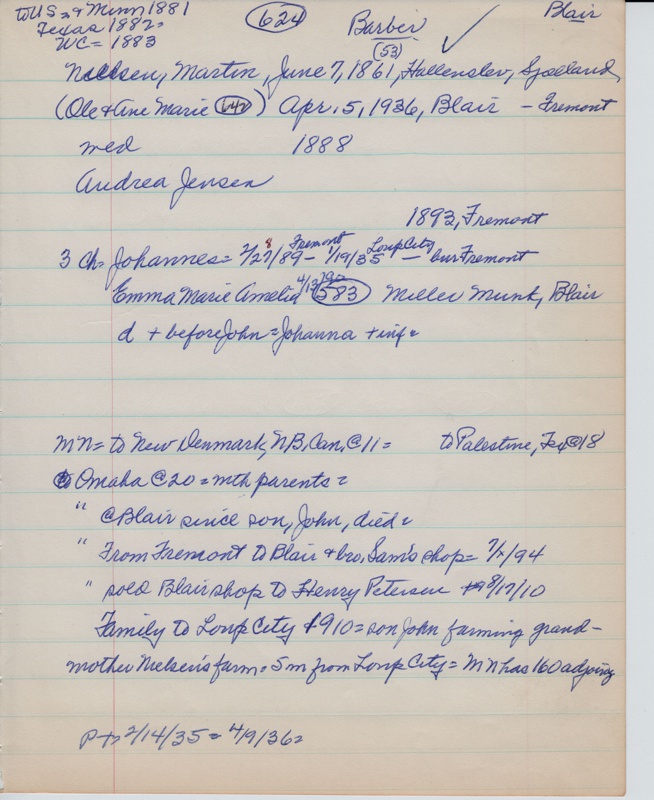 to US = & Minn 1881
Texas 1882 =
WC = 1883
624
Barber
(53)
Blair
Nielsen, Martin, June 7, 1861, Hallenslev, Sjælland
(Ole & Ane Marie 642) Apr. 5, 1936, Blair – Fremont
med 1888
Andrea Jensen
1893, Fremont
3 Ch = Johannes = 2/28/89 – Fremont 1/19/35 Loup City – bur Fremont
Emma Marie Amelia 4/13/90 583 Miller Munk, Blair
d + before John = Johanna + inf =
MN = to New Denmark, NB, Can. @ 11 = to Palestine, Tex @ 18
to Omaha @ 20 = with parents =
" @ Blair since son, John, died =
" From Fremont to Blair & bro, Sam's shop = 94
" sold Blair shop to Henry Petersen 8/17/10
Family to Loup City 1910 = son John farming grand-
mother Nielsen's farm = 5 m from Loup City = MN has 160 adjoing
P + 2/14/35 = 4/9/36 =